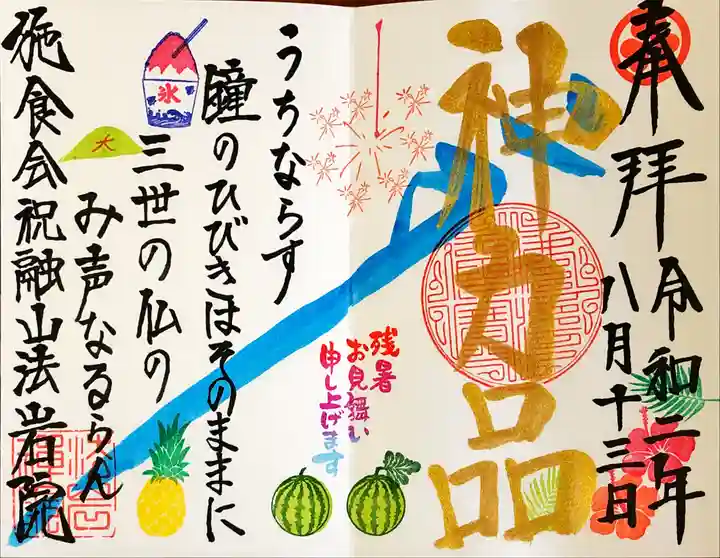 奉拝
令和二年
八月十三日
神力品
残暑
お見舞い
申し上げます
うちならす
瞳のひびきはそのままに
三世の仏の
み声なるらん
施食会祝融山法岩院
氷
大